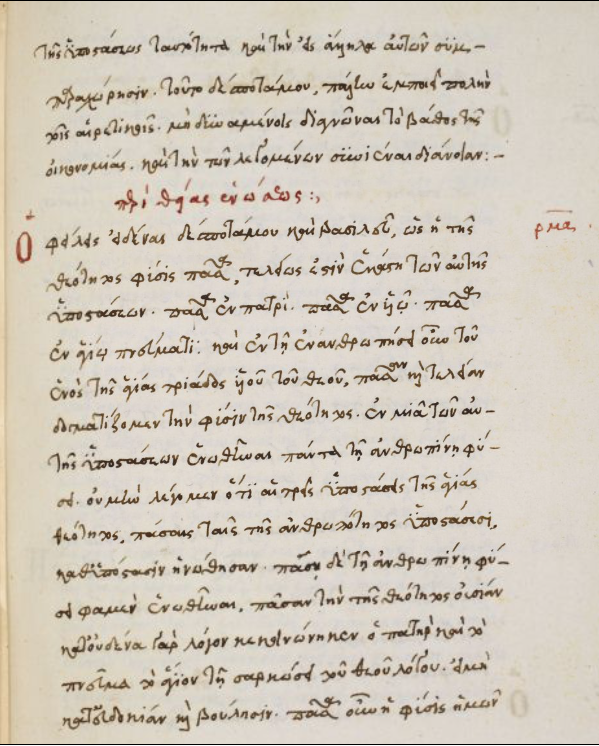 τῆς ὑποστάσεως ταυτότητα καὶ τὴν εἰς ἄλληλα αὐτῶν συμ-
περιχώρησιν. τοῦτο δέσποτά μου, πάλιν ἐμποιεῖ πολλὴν
τοῖς αἱρετικοῖς. μὴ δυναμένοις διαγνῶναι τὸ βάθος τῆς
οἰκονομίας. καὶ τὴν τῶν λεγομένων συνιέναι διάνοιαν:-
περὶ θείας ἑνώσεως:,
Ὀφείλεις εἰδέναι δέσποτά μου καὶ βασιλεῦ, ὡς ἡ τῆς
ρμα.
θεότητος φύσις πᾶσα, τελέως ἐστὶν ἐν ἑκάστῃ τῶν αὐτῆς
ὑποστάσεων. πᾶσα ἐν πατρί. πᾶσα ἐν υἱῷ. πᾶσα
ἐν ἁγίῳ πνεύματι. καὶ ἐν τῇ ἐνανθρωπήσει οὖν τοῦ
ἑνὸς τῆς ἁγίας τριάδος υἱοῦ τοῦ θεοῦ, πᾶσαν καὶ τελείαν
δογματίζομεν τὴν φύσιν τῆς θεότητος. ἐν μιᾷ τῶν αὐ-
τῆς ὑποστάσεων ἑνωθῆναι πάντα τῇ ἀνθρωπίνῃ φύ-
σει. οὐ μὴν λέγομεν ὅτι αἱ τρεῖς ὑποστάσεις τῆς ἁγίας
θεότητος, πάσαις ταῖς τῆς ἀνθρωπότητος ὑποστάσεσι,
καθ' ὑπόστασιν ἡνώθησαν. πάσῃ δὲ τῇ ἀνθρωπίνῃ φύ-
σει φαμὲν ἑνωθῆναι, πᾶσαν τὴν τῆς θεότητος οὐσίαν
κατ' οὐδένα γὰρ λόγον κεκοινώνηκεν ὁ πατὴρ καὶ τὸ
πνεῦμα τὸ ἅγιον τῇ σαρκώσει τοῦ θεοῦ λόγου. εἰ μὴ
κατ' εὐδοκίαν καὶ βούλησιν. πᾶσα οὖν ἡ φύσις ἡμῶν